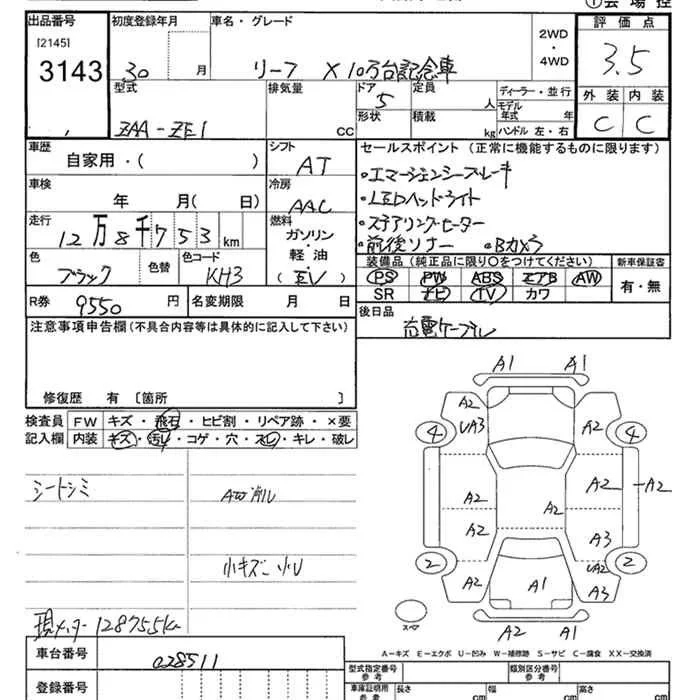 出品番号 初度登録年月 車名・グレード 評価点
[2145]
3143
30 月 リーフ X 10万台記念車 2WD・4WD 3.5
型式 排気量 ドア 定員 ディーラー・並行 外装 内装
ZAA-ZE1 CC 5 人 モデル年式 年 C C
形状 積載 kg ハンドル 左・右
車歴 シフト セールスポイント(正常に機能するものに限ります)
自家用・( ) AT ・エマージェンシーブレーキ
車検 冷房 ・LEDヘッドライト
年 月( 日) AAC ・ステアリングヒーター
走行 燃料 ・前後ソナー ・Bカメラ
12万8千753km ガソリン・軽油
(EV)
色 色替 色コード 装備品(純正品に限り○をつけてください) 新車保証書
ブラック KH3 PS PW ABS エアB AW 有・無
SR ナビ TV カワ
R券 9550円 名変期限 月 日 後日品
充電ケーブル
注意事項申告欄(不具合内容等は具体的に記入して下さい)
修復歴 有 〔箇所 〕
検査員 FW キズ・飛石・ヒビ割・リペア跡・×要
記入欄 内装 キズ・汚レ・コゲ・穴・スレ・キレ・破レ
シートシミ AW削レ
小キズ 小U
現メーター128755km
A1 A1
A2
4 UA3 A2 4
A2 A2 A2
A2 A2
A3
2 UA2 2
A2 A1 A3
スペア A2 A1
A-キズ E-エクボ U-凹み W-補修跡 S-サビ C-腐食 XX-交換済
車台番号 028511
登録番号
型式指定番号 参考 類別区分番号 参考
車庫証明用 参考 長さ cm 幅 cm 高さ cm